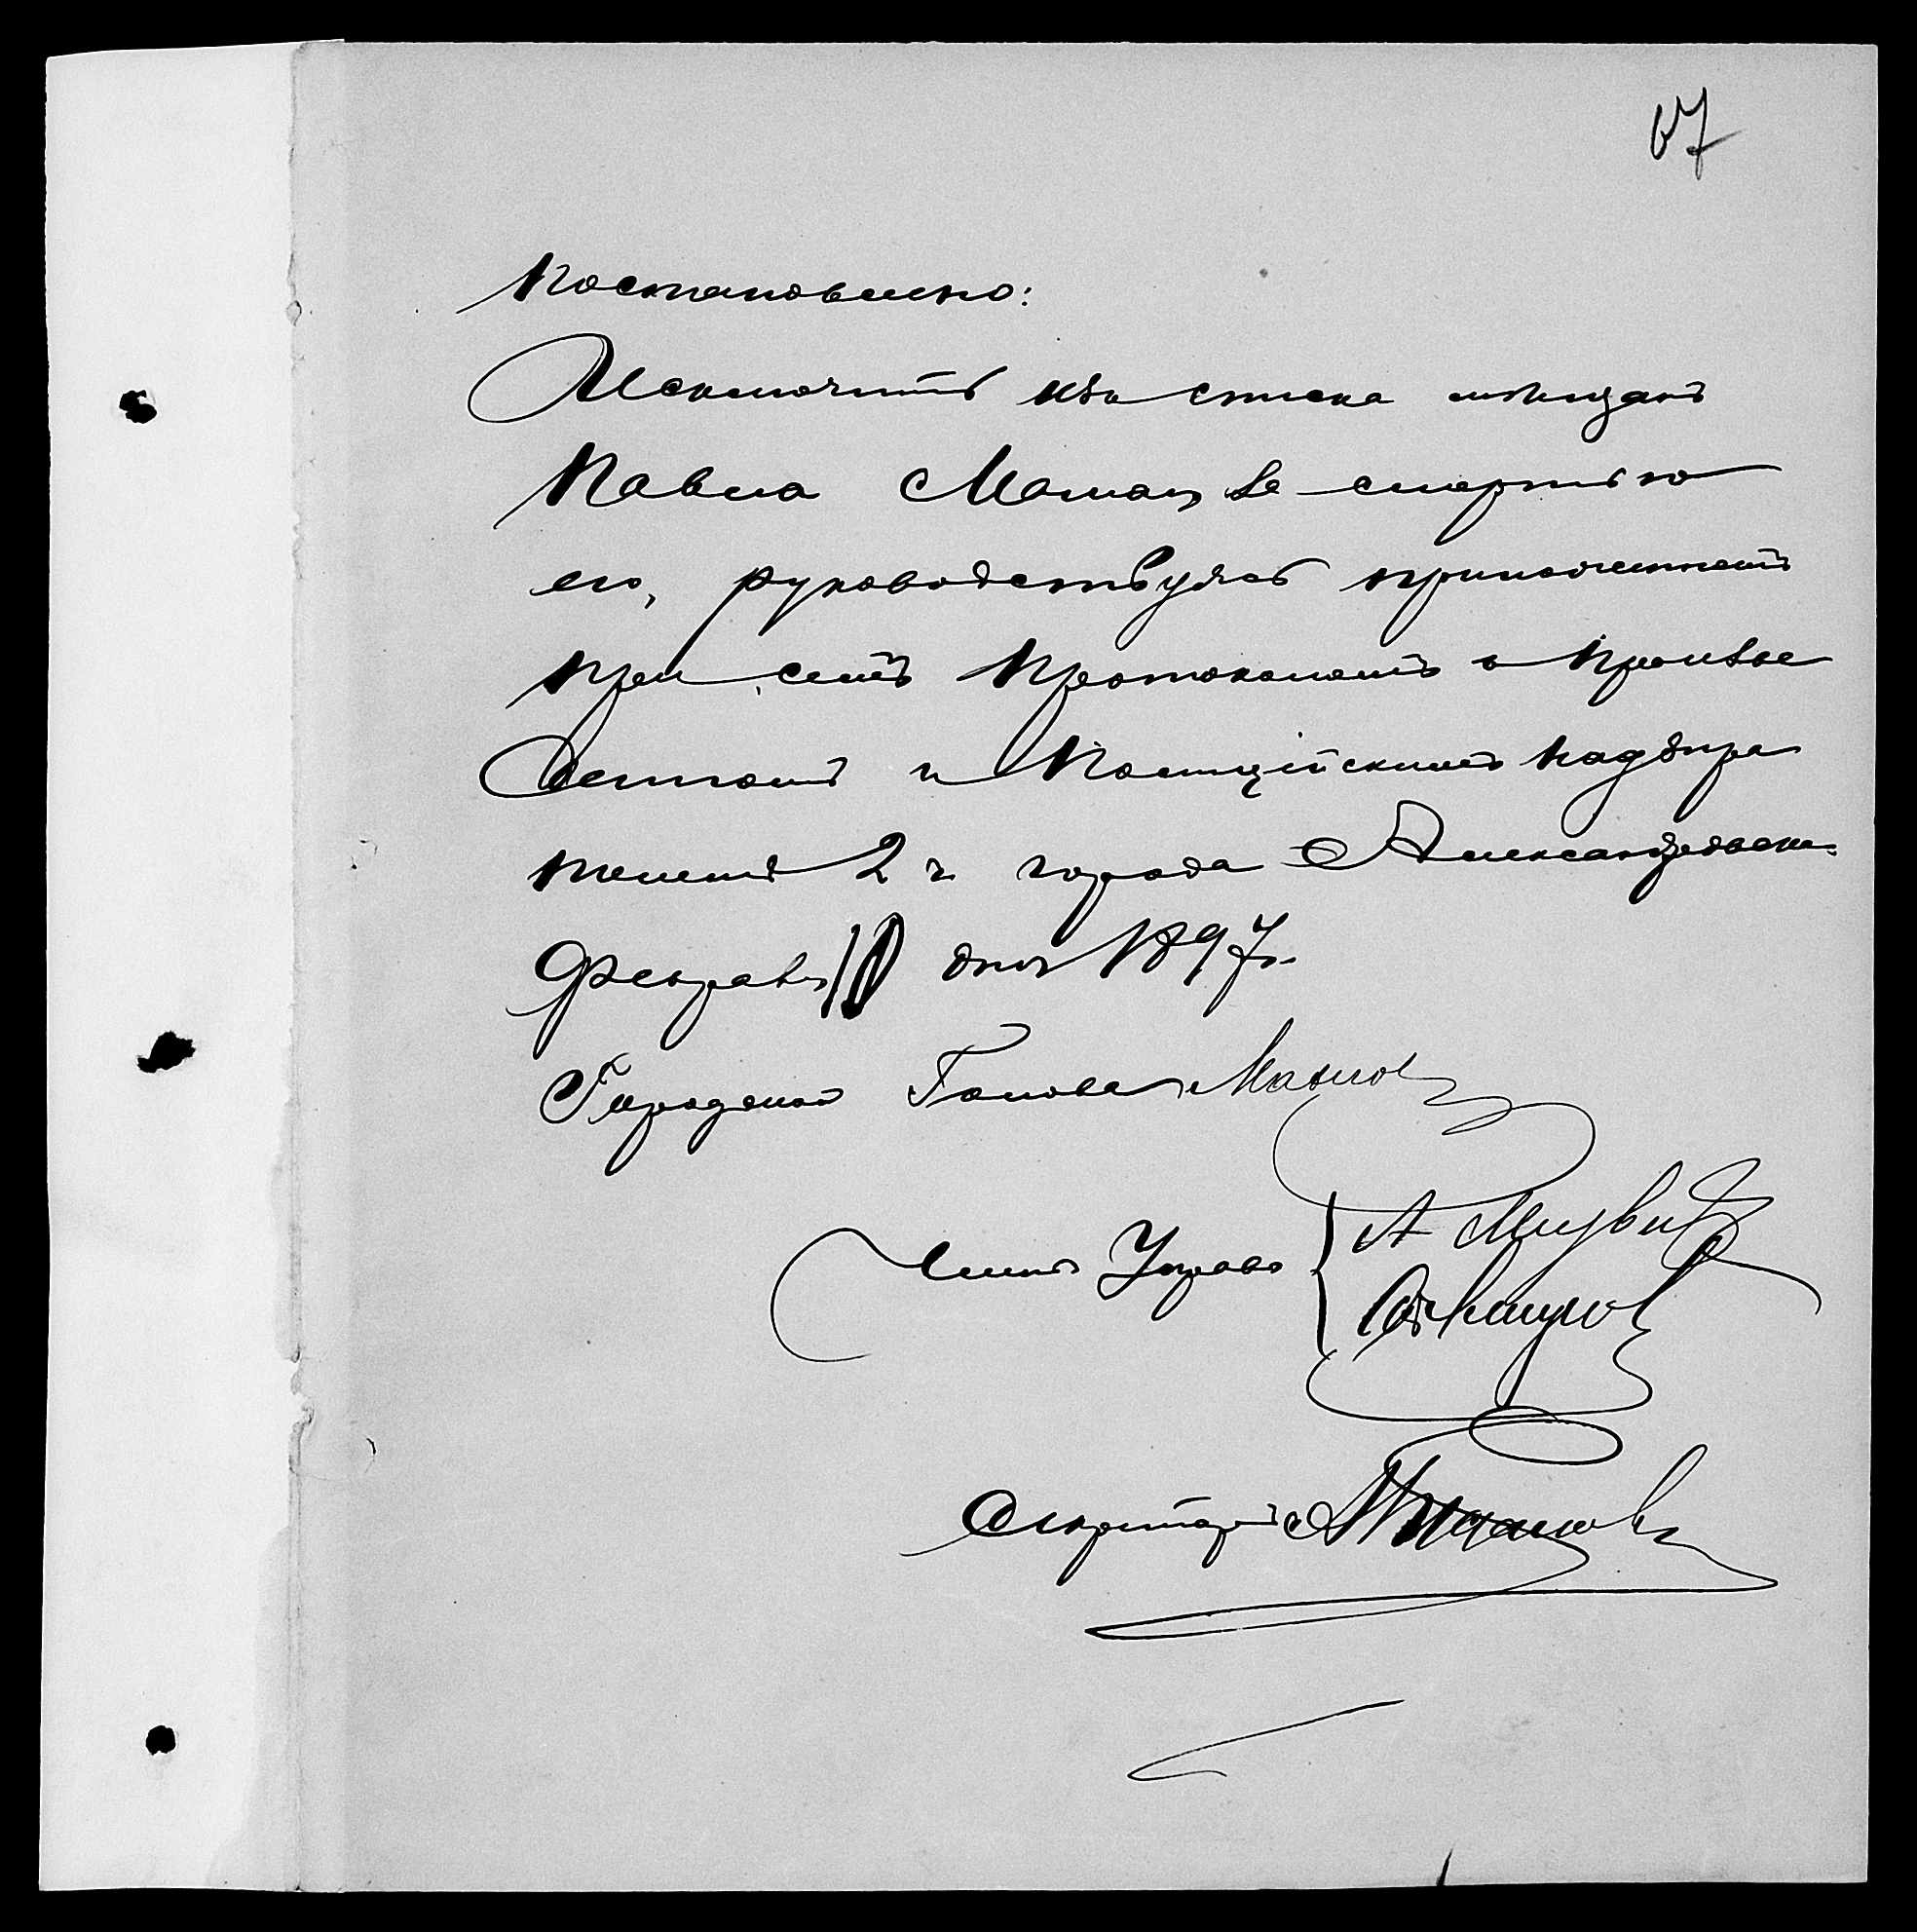 67
Постановлено:
Исключить изъ списка мѣщанъ
Павла за смертью
его, руководствуясь приложеннымъ
при семъ протоколомъ о произве
деномъ Полицейскимъ надзира
телемъ 2 ч. города Александровска.
Февраля 10 дня 1897 г.
Городской Голова
Члены Управы
Секретарь